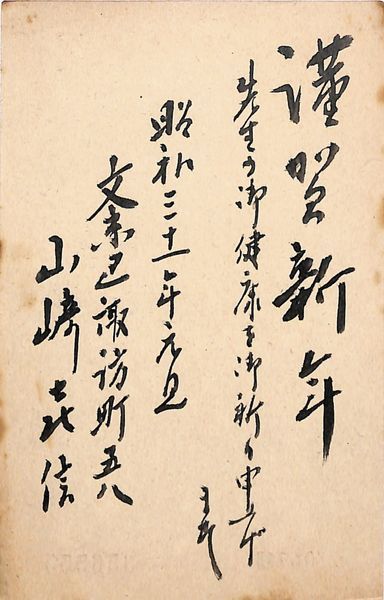 謹賀新年
先生の御健康を御祈り申上げ
ます
昭和三十一年元旦
文京区諏訪町五八
山崎喜信